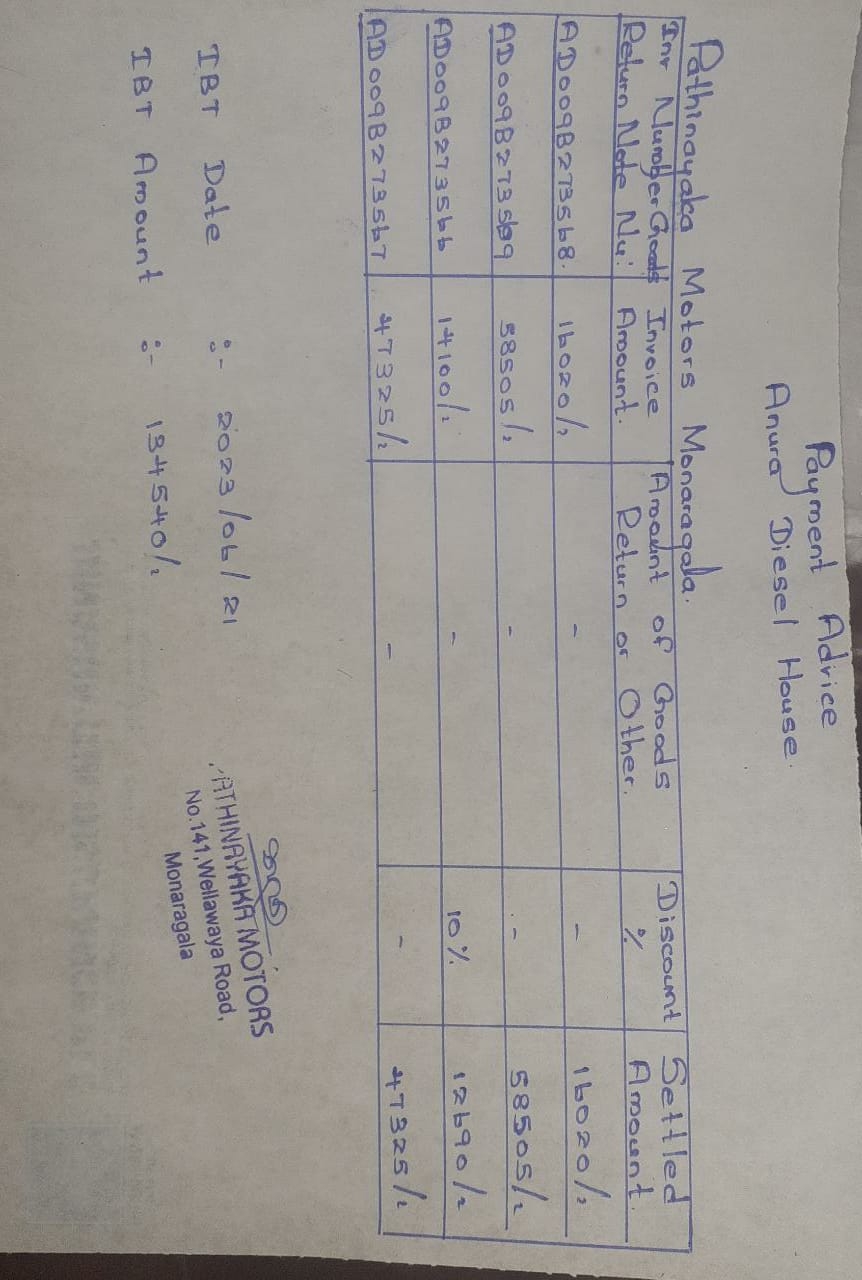 Payment Advice
Anura Diesel House.
Pathinayaka Motors Monaragala.
Inv Number Goods Return Note Nu: | Invoice Amount. | Amount of Goods Return or Other. | Discount % | Settled Amount.
AD009B273568. | 16020/= | - | - | 16020/=
AD009B273569 | 58505/= | - | - | 58505/=
AD009B273566 | 14100/= | - | 10% | 12690/=
AD009B273567 | 47325/= | - | - | 47325/=
IBT Date :- 2023/06/21
IBT Amount :- 134540/=
ATHINAYAKA MOTORS
No.141, Wellawaya Road,
Monaragala